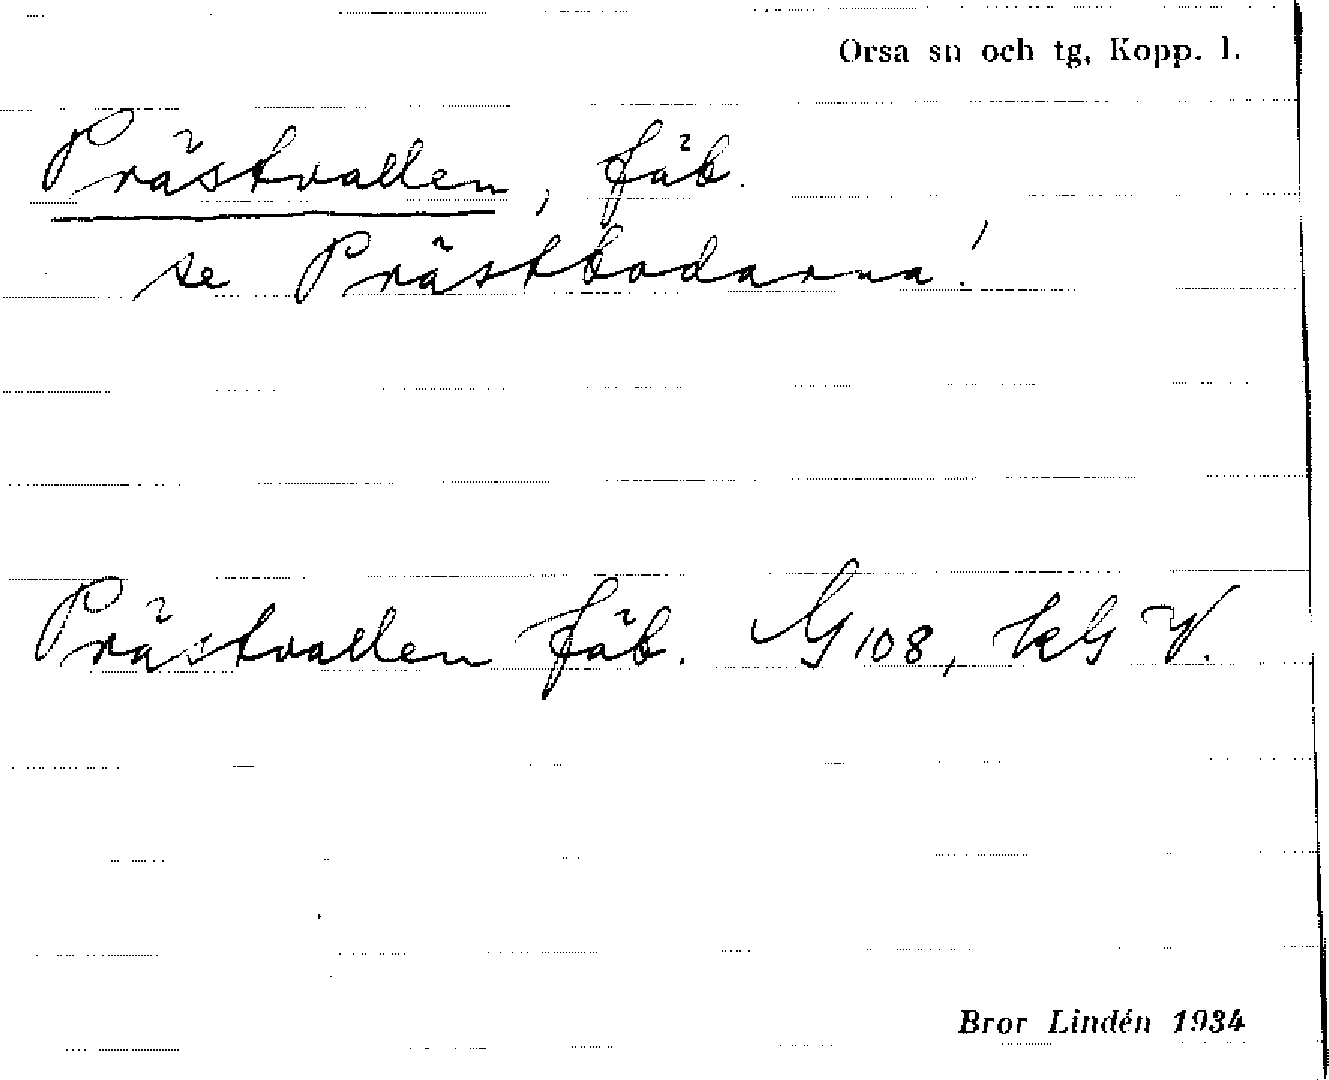 Orsa sn och tg, Kopp. l.
Prästvallen, fäb.
se Prästbodarna!
Prästvallen fäb. G 108, kG V.
Bror Lindén 1934